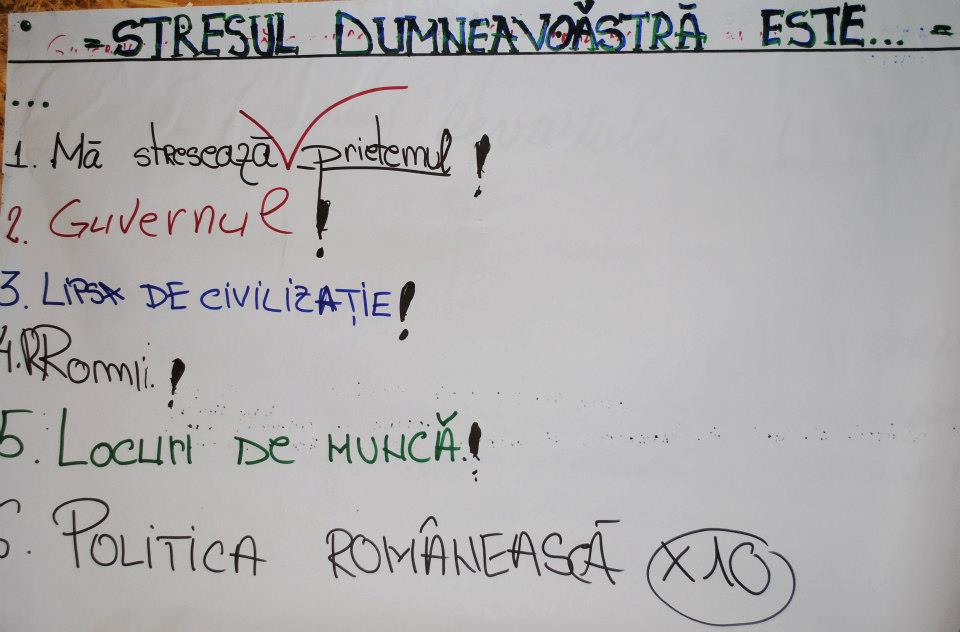 • = STRESUL DUMNEAVOASTRĂ ESTE... =
...
1. Mă stresează prietemul !
2. Guvernul !
3. LIPSA DE CIVILIZAȚIE !
4. RRomii. !
5. LOCURI DE MUNCĂ. !
6. POLITICA ROMÂNEASCĂ X10